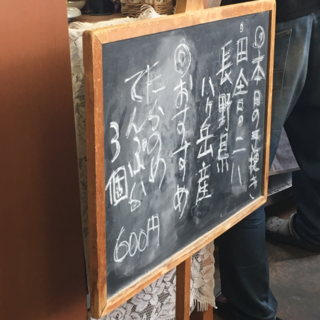 ◎本日の手挽き
田舎
長野県
八ヶ岳産
◎おすすめ
たらのめ
てんぷら
3個
600円